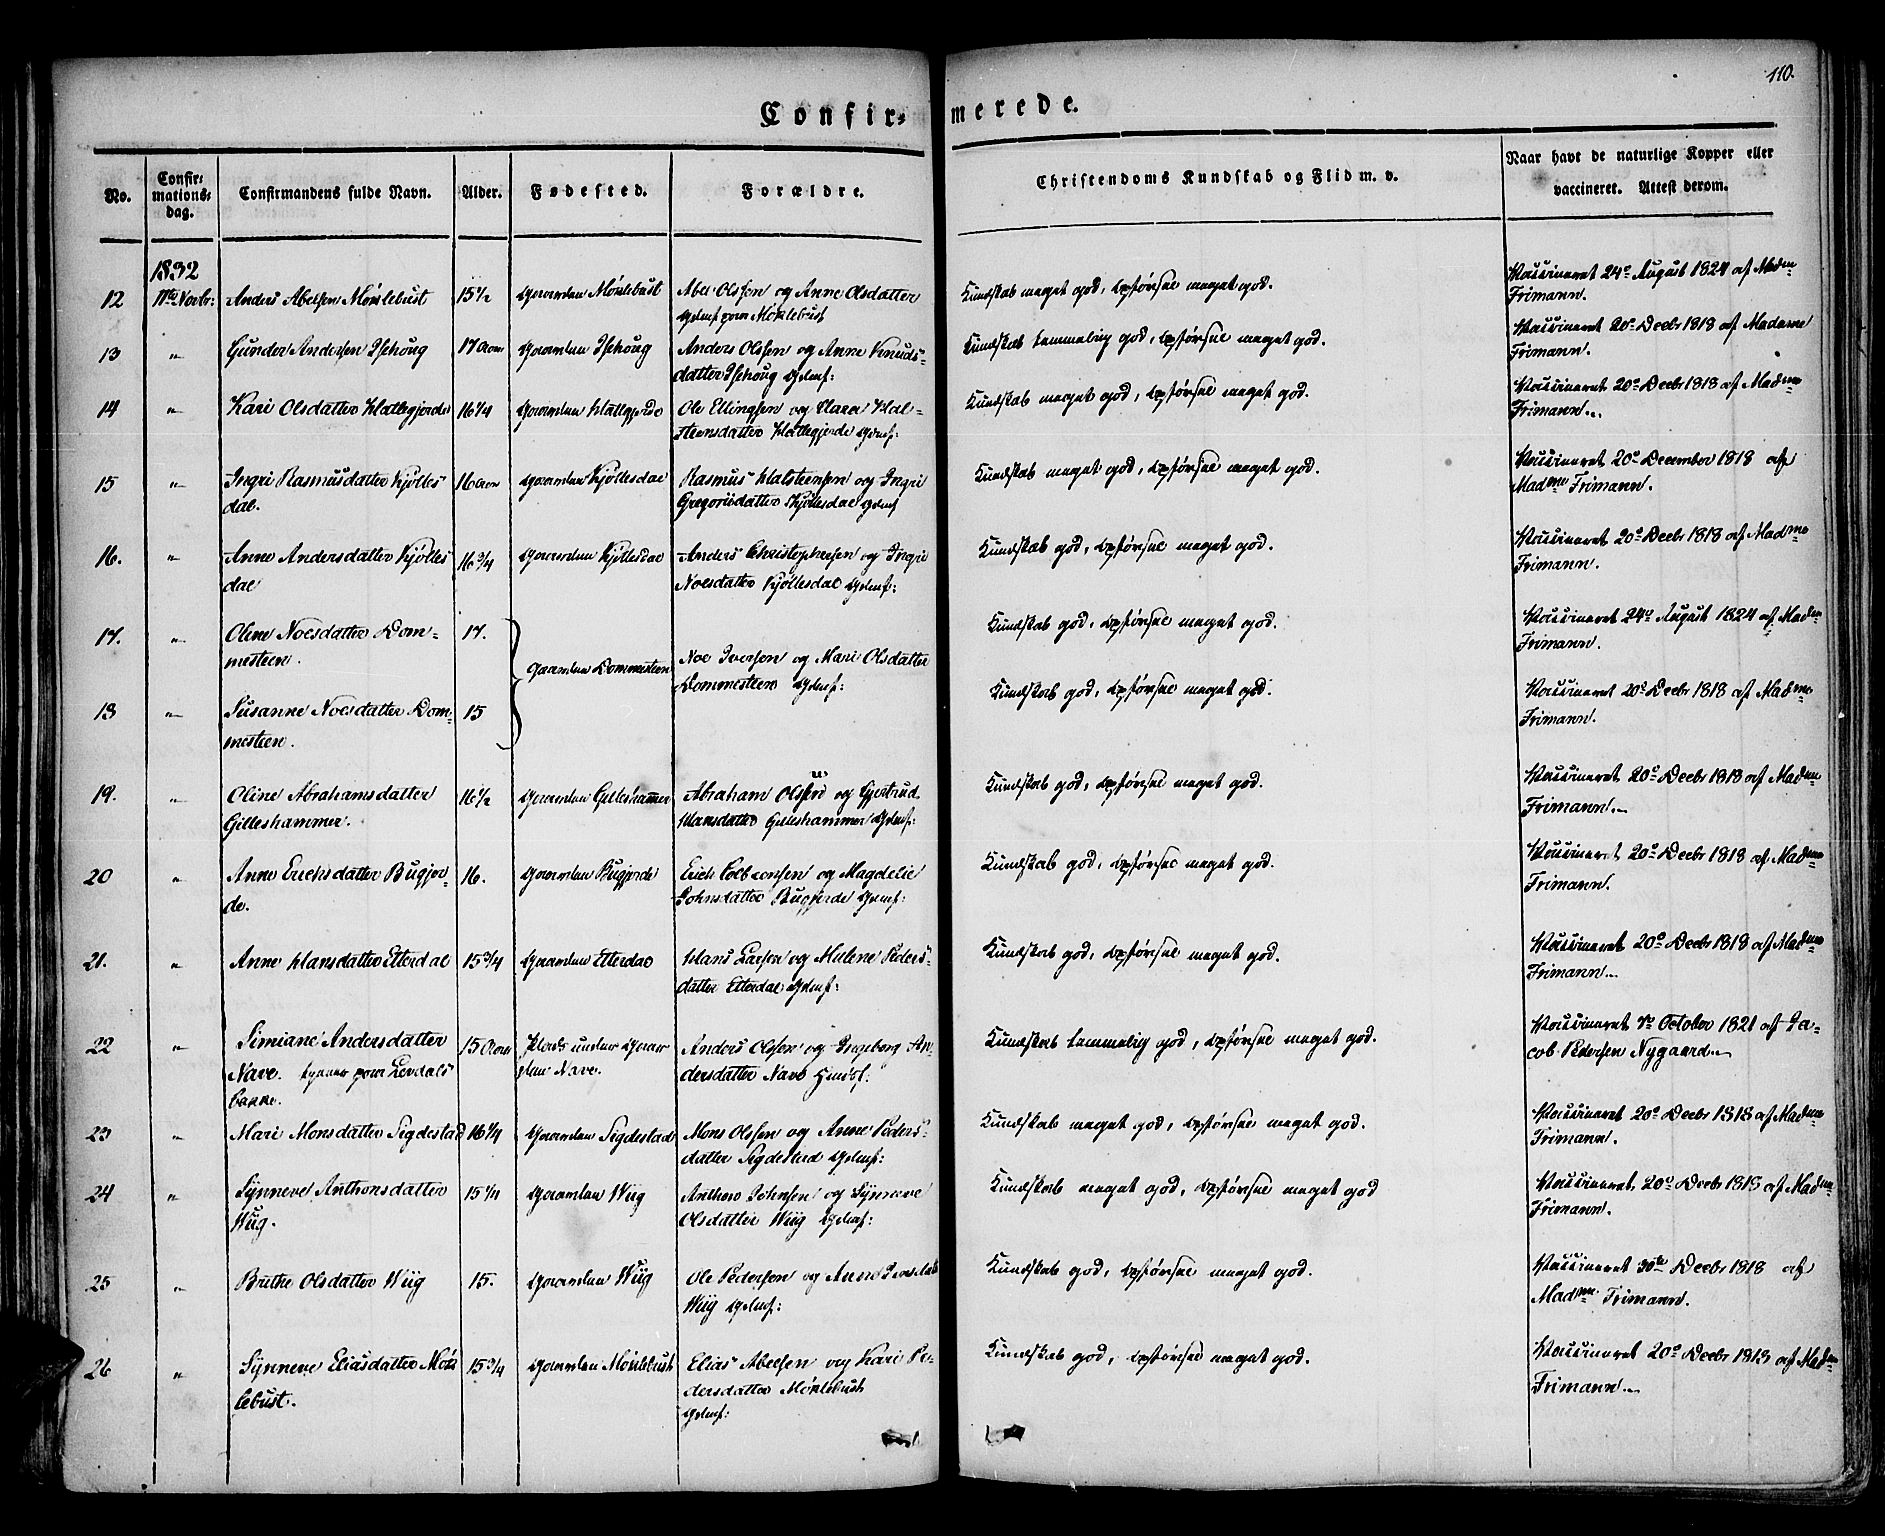 110.
Confirmerede.
No.
Confir=
mations=
dag.
Confirmandens fulde Navn.
Alder.
Fødested.
Forældre.
Christendoms Kundskab og Flid m. v.
Naar havt de naturlige Kopper eller
vaccineret. Attest derom.
1832
12 11te Novbr: Anders Abelsen Möklebust 15½ Gaarden Möklebust Abel Olssen og Anne Olsdatter Kundskab meget god, Opførsel meget god. Vaccineret 24de August 1824 af Madme
Möklebust Frimann.
13 " Gunder Andersen Isehoug 17 Aar Gaarden Isehoug Anders Olssen og Anne Knuds- Kundskab temmelig god, Opførsel meget god. Vaccineret 20de Decbr 1818 af Madame
datter Isehoug Frimann.
14 " Kari Olsdatter Hatlegjerde 16¼ Gaarden Hatlegjerde Ole Ellingsen og Maren Hal- Kundskab meget god, Opførsel meget god. Vaccineret 20de Decbr 1818 af Madme
steensdatter Hatlegjerde Frimann.
15 " Ingri Rasmusdatter Kjölles 16 Aar Gaarden Kjöllesdal Rasmus Halsteensen og Ingri Kundskab meget god, Opførsel meget god. Vaccineret 20de December 1818 af
dal. Gregoriidatter Kjöllesdal Madme Frimann.
16. " Anne Andersdatter Kjölles 16¾ Gaarden Kjöllesdal Anders Christophersen og Ingri Kundskab god, Opførsel meget god. Vaccineret 20de Decbr 1818 af Madme
dal Noesdatter Kjöllesdal Frimann.
17. " Oline Noesdatter Dom- 17. Kundskab god, Opførsel meget god. Vaccineret 24de August 1824 af Madme
mesteen. Gaarden Dommesteen Noe Iversen og Mari Olsdatter Frimann.
Dommesteen
18 " Susanne Noesdatter Dom- 15 Kundskab god, Opførsel meget god. Vaccineret 20de Decbr 1818 af Madme
mesteen. Frimann.
19. " Oline Abrahamsdatter 16½ Gaarden Gilleshammer Abraham Olsen og Gjertrud Kundskab god, Opførsel meget god. Vaccineret 20de Decbr 1818 af Madme
Gilleshammer. Hansdatter Gilleshammer Frimann.
20 " Anne Erichsdatter Bugjer- 16. Gaarden Bugjerde Erich Colbensen og Magdelie Kundskab god, Opførsel meget god. Vaccineret 20de Decbr 1818 af Madme
de. Johnsdatter Bugjerde Frimann.
21. " Anne Hansdatter Etterdal 15¾ Gaarden Etterdal Hans Larsen og Malene Peders- Kundskab god, Opførsel meget god. Vaccineret 20de Decbr 1818 af Madme
datter Etterdal Frimann.
22 " Simiane Andersdatter 15 Aar Plads under Gaar Anders Olssen og Ingeborg An- Kundskab temmelig god, Opførsel meget god. Vaccineret 7de October 1821 af Ja-
Nave. Levdals den Nave. dersdatter Nave cob Pedersen Nygaard
bakke.
23 " Mari Monsdatter Sigdestad 16¼ Gaarden Sigdestad Mons Olssen og Anne Peders- Kundskab meget god, Opførsel meget god. Vaccineret 20de Decbr 1818 af Madme
datter Sigdestad Frimann.
24 " Synneve Anthonsdatter 15¼ Gaarden Wiig Anthon Johnsen og Synneve Kundskab meget god, Opførsel meget god Vaccineret 20de Decbr 1818 af Madme
Wiig. Olsdatter Wiig Frimann.
25 " Brithe Olsdatter Wiig 15. Gaarden Wiig Ole Pedersen og Anne Kundskab god, Opførsel meget god. Vaccineret 30te Decbr 1818 af
Wiig Madme Frimann.
26 " Synneve Eliasdatter Mök 15¾ Gaarden Möklebust Elias Abelsen og Kari Pe- Kundskab god, Opførsel meget god. Vaccineret 20de Decbr 1818 af Madme
lebust. dersdatter Möklebust Frimann.